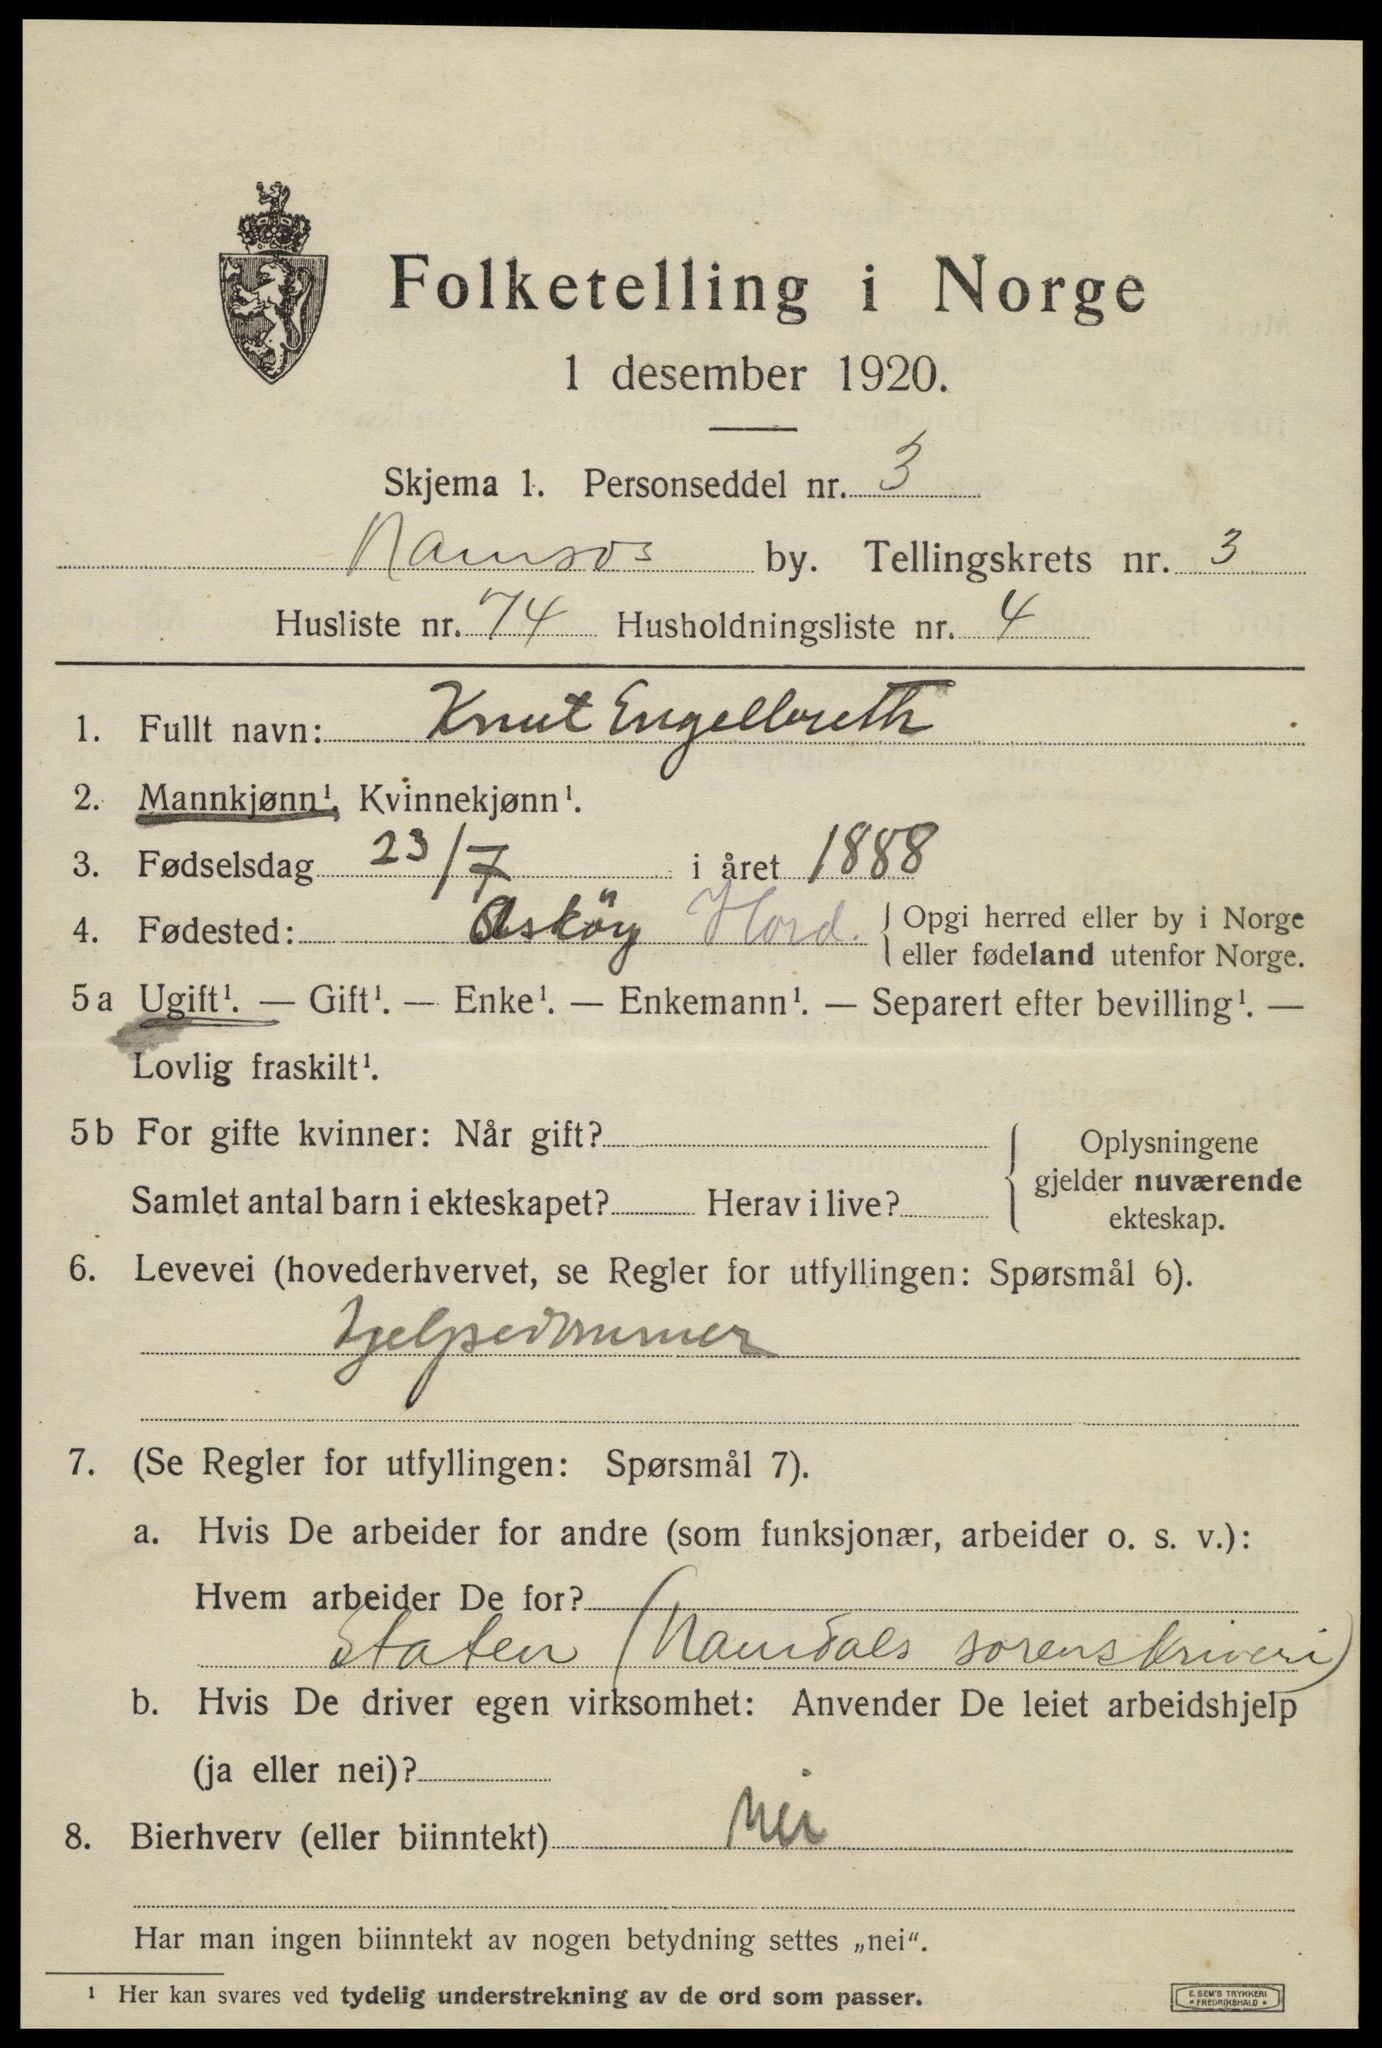 Folketelling i Norge
1 desember 1920.
Skjema 1. Personseddel nr. 3
Namsos by. Tellingskrets nr. 3
Husliste nr. 74 Husholdningsliste nr. 4
1. Fullt navn: Knut Engelbreth
2. Mannkjønn¹, Kvinnekjønn¹.
3. Fødselsdag 23/7 i året 1888
4. Fødested: Asköy Hord. { Opgi herred eller by i Norge
eller fødeland utenfor Norge.
5a Ugift¹. — Gift¹. — Enke¹. — Enkemann¹. — Separert efter bevilling¹. —
Lovlig fraskilt¹.
5b For gifte kvinner: Når gift?
Samlet antal barn i ekteskapet? Herav i live?
{ Oplysningene
gjelder nuværende
ekteskap.
6. Levevei (hovederhvervet, se Regler for utfyllingen: Spørsmål 6).
hjelpedommer
7. (Se Regler for utfyllingen: Spørsmål 7).
a. Hvis De arbeider for andre (som funksjonær, arbeider o. s. v.):
Hvem arbeider De for?
Staten (Namdals sorenskriveri)
b. Hvis De driver egen virksomhet: Anvender De leiet arbeidshjelp
(ja eller nei)?
8. Bierhverv (eller biinntekt) Nei
Har man ingen biinntekt av nogen betydning settes „nei“.
¹ Her kan svares ved tydelig understrekning av de ord som passer.
E. SEM'S TRYKKERI
* FREDRIKSHALD *